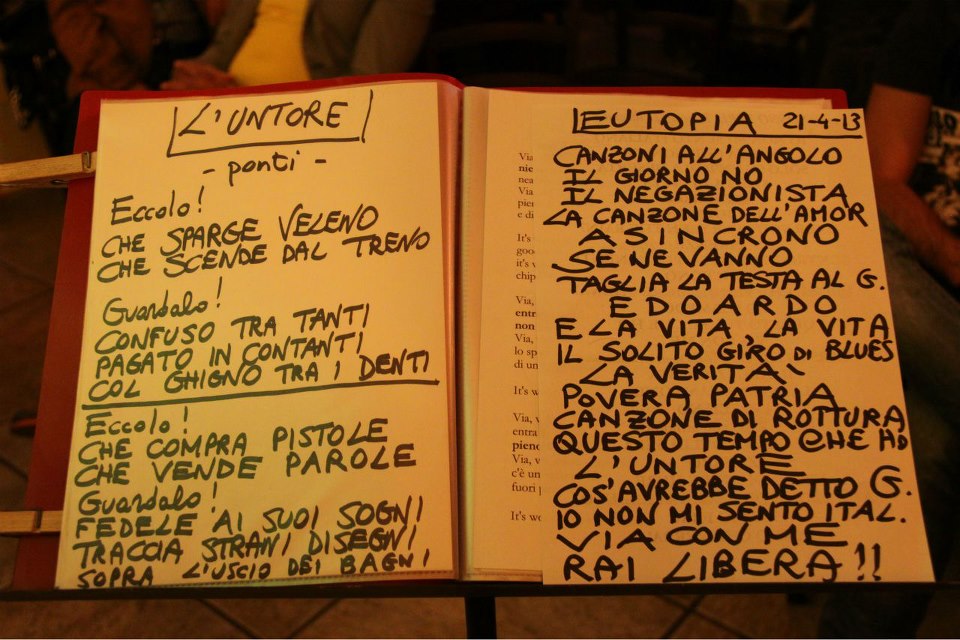 L'UNTORE
- ponti -
Eccolo!
CHE SPARGE VELENO
CHE SCENDE DAL TRENO
Guardalo!
CONFUSO TRA TANTI
PAGATO IN CONTANTI
COL GHIGNO TRA I DENTI
Eccolo!
CHE COMPRA PISTOLE
CHE VENDE PAROLE
Guardalo!
FEDELE AI SUOI SOGNI
TRACCIA STRANI DISEGNI
SOPRA L'USCIO DEI BAGNI
Via
nie
nea
Via
pien
e di
It's
goo
it's v
chip
Via,
entr
non
Via,
lo sp
di un
It's w
Via, v
entra
pieno
Via, v
c'è un
fuori
It's wo
EUTOPIA 21-4-13
CANZONI ALL'ANGOLO
IL GIORNO NO
IL NEGAZIONISTA
LA CANZONE DELL'AMOR
ASINCRONO
SE NE VANNO
TAGLIA LA TESTA AL G.
EDOARDO
E LA VITA, LA VITA
IL SOLITO GIRO DI BLUES
LA VERITA'
POVERA PATRIA
CANZONE DI ROTTURA
QUESTO TEMPO CHE HO
L'UNTORE
COS'AVREBBE DETTO G.
IO NON MI SENTO ITAL.
VIA CON ME
RAI LIBERA!!